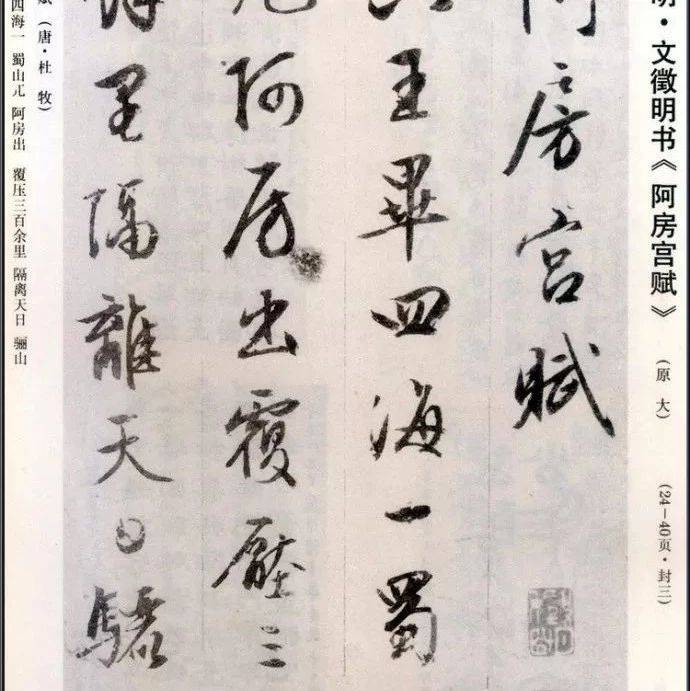 明·文徵明书《阿房宫赋》
（原大）
（24—40页·封三）
阿房宫賦
六王畢四海一蜀
兀阿房出覆壓三
餘里隔離天日驪
赋（唐·杜牧）
四海一 蜀山兀 阿房出 覆压三百余里 隔离天日 骊山